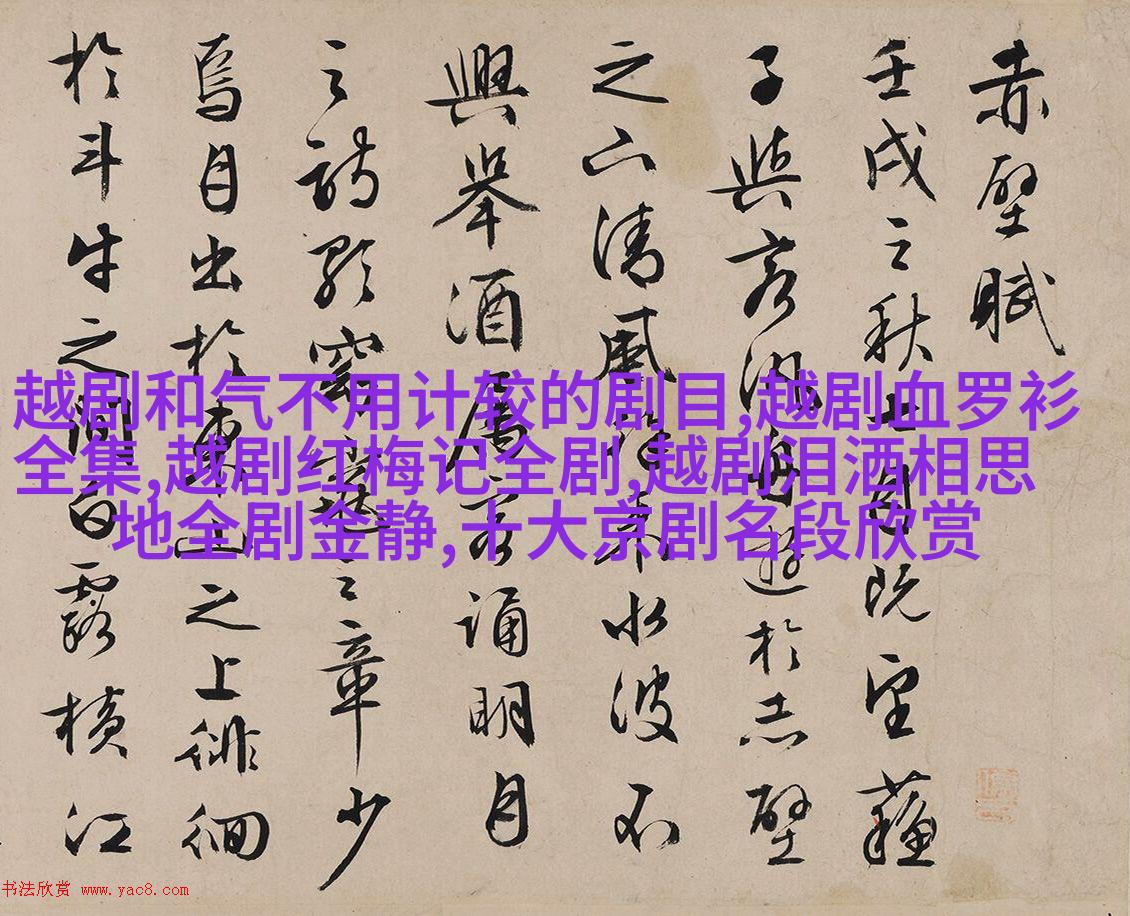 赤壁賦
壬戌之秋七月既望蘇
子與客泛舟遊於赤壁
之下清風徐來水波不
興舉酒屬客誦明月
之詩歌窈窕之章少
焉月出於東山之上徘徊
於斗牛之間白露橫江
越剧和气不用计较的剧目,越剧血罗衫
全集,越剧红梅记全剧,越剧泪洒相思
地全剧金静,十大京剧名段欣赏
书法欣赏 www.yac8.com